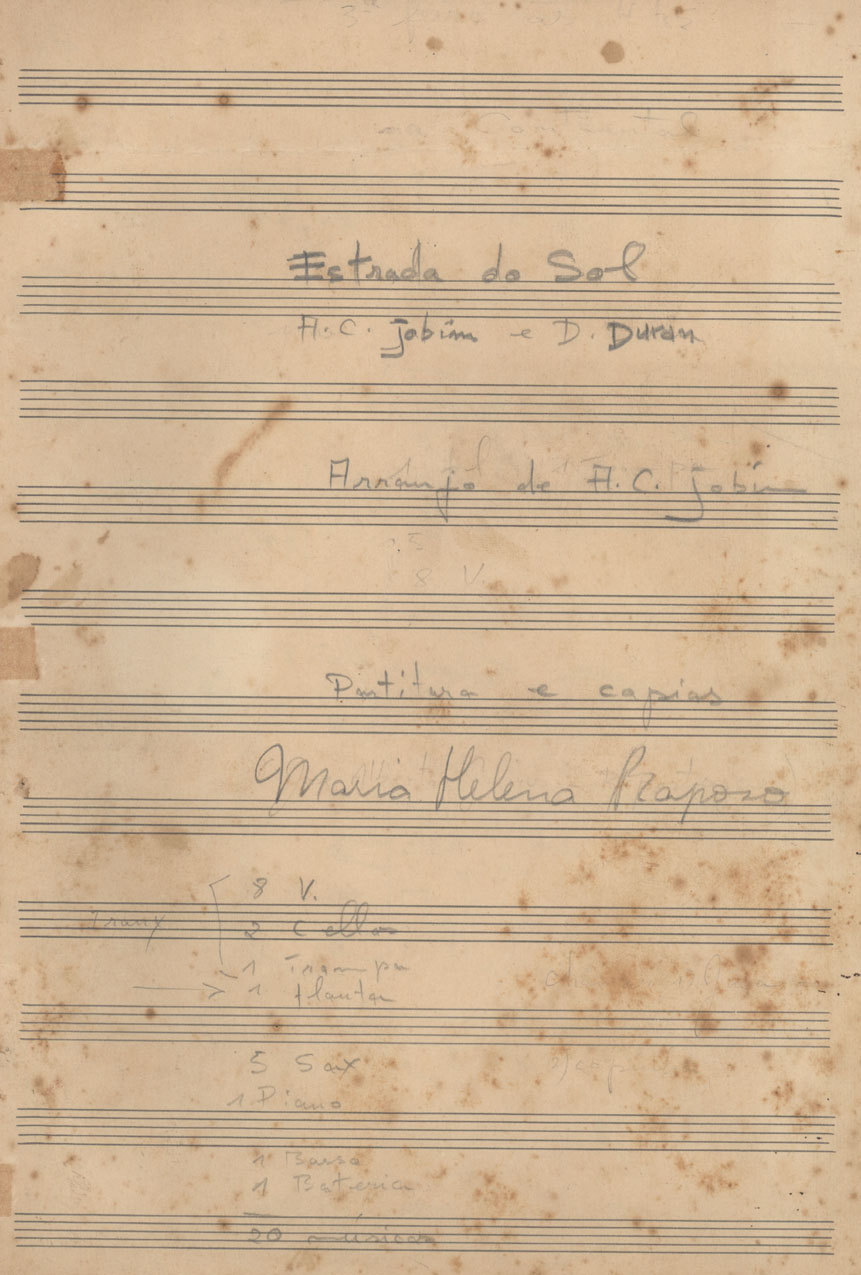 3ª
na Continental
Estrada do Sol
A. C. Jobim e D. Duran
Arranjo de A. C. Jobim
5
8 V.
Partitura e copias
Maria Helena Raposo
8 V.
Irany 2 Cellos
1 Trompa
1 flauta
5 Sax
1 Piano
1 Baixo
1 Bateria
20 músicos